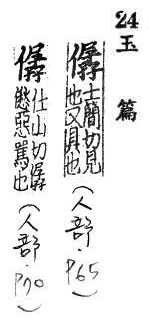 24 玉篇
僝 士簡切見也又具也 (人部.P65)
僝 仕山切僝僽惡罵也 (人部.P70)